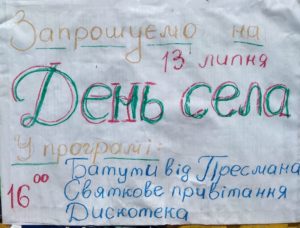 Запрошуємо на
13 липня
День села
У програмі:
Батути від Пресмана
16⁰⁰ Святкове привітання
Дискотека